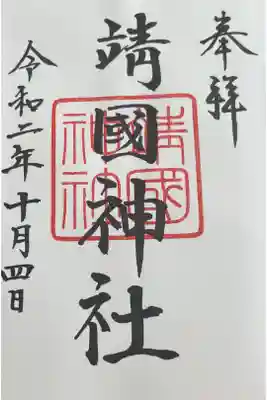 奉拝
靖國神社
靖國神社
令和二年十月四日